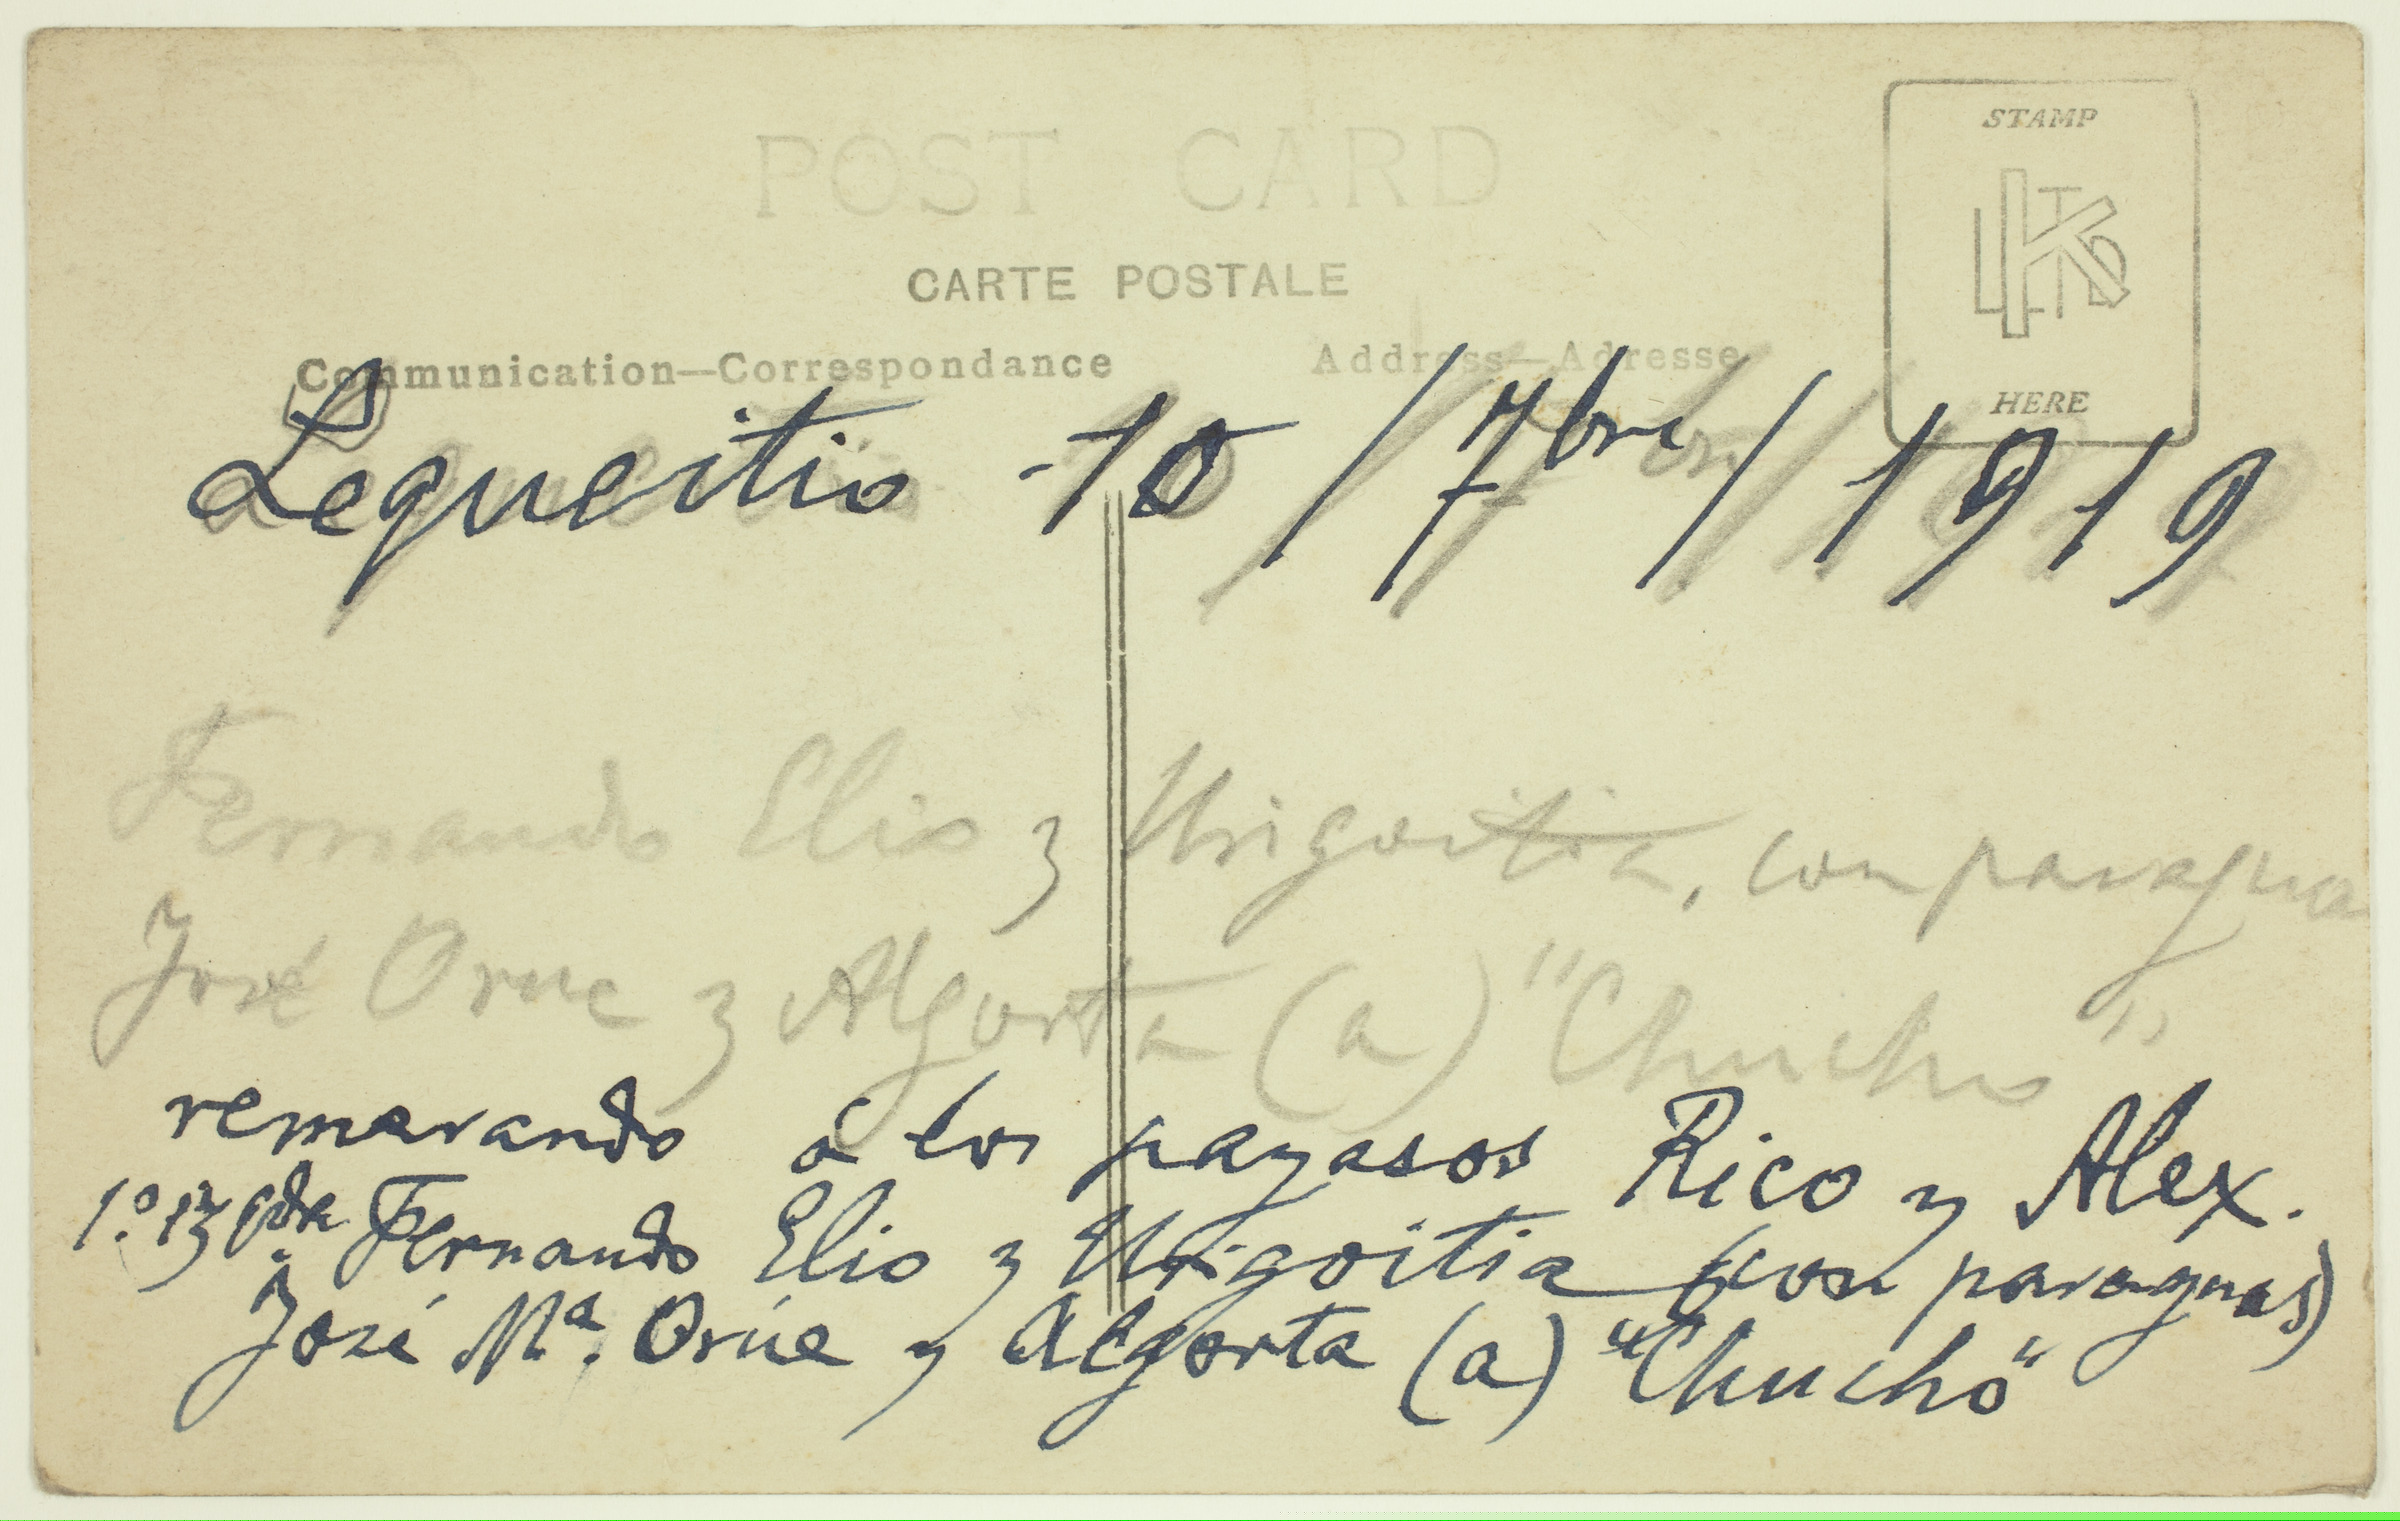 POST CARD
CARTE POSTALE
Communication—Correspondance
Address—Adresse
STAMP
K LTD
HERE
Lequeitio -10/7bre/1919
Fernando Elio y Urigoitia, con paragua
José Orue y Algorta (a) "Chucho"
remerando á los payasos Rico y Alex.
1.º izqda Fernando Elio y Urigoitia (con paraguas)
José Mª. Orúe y Algorta (a) "Chucho"